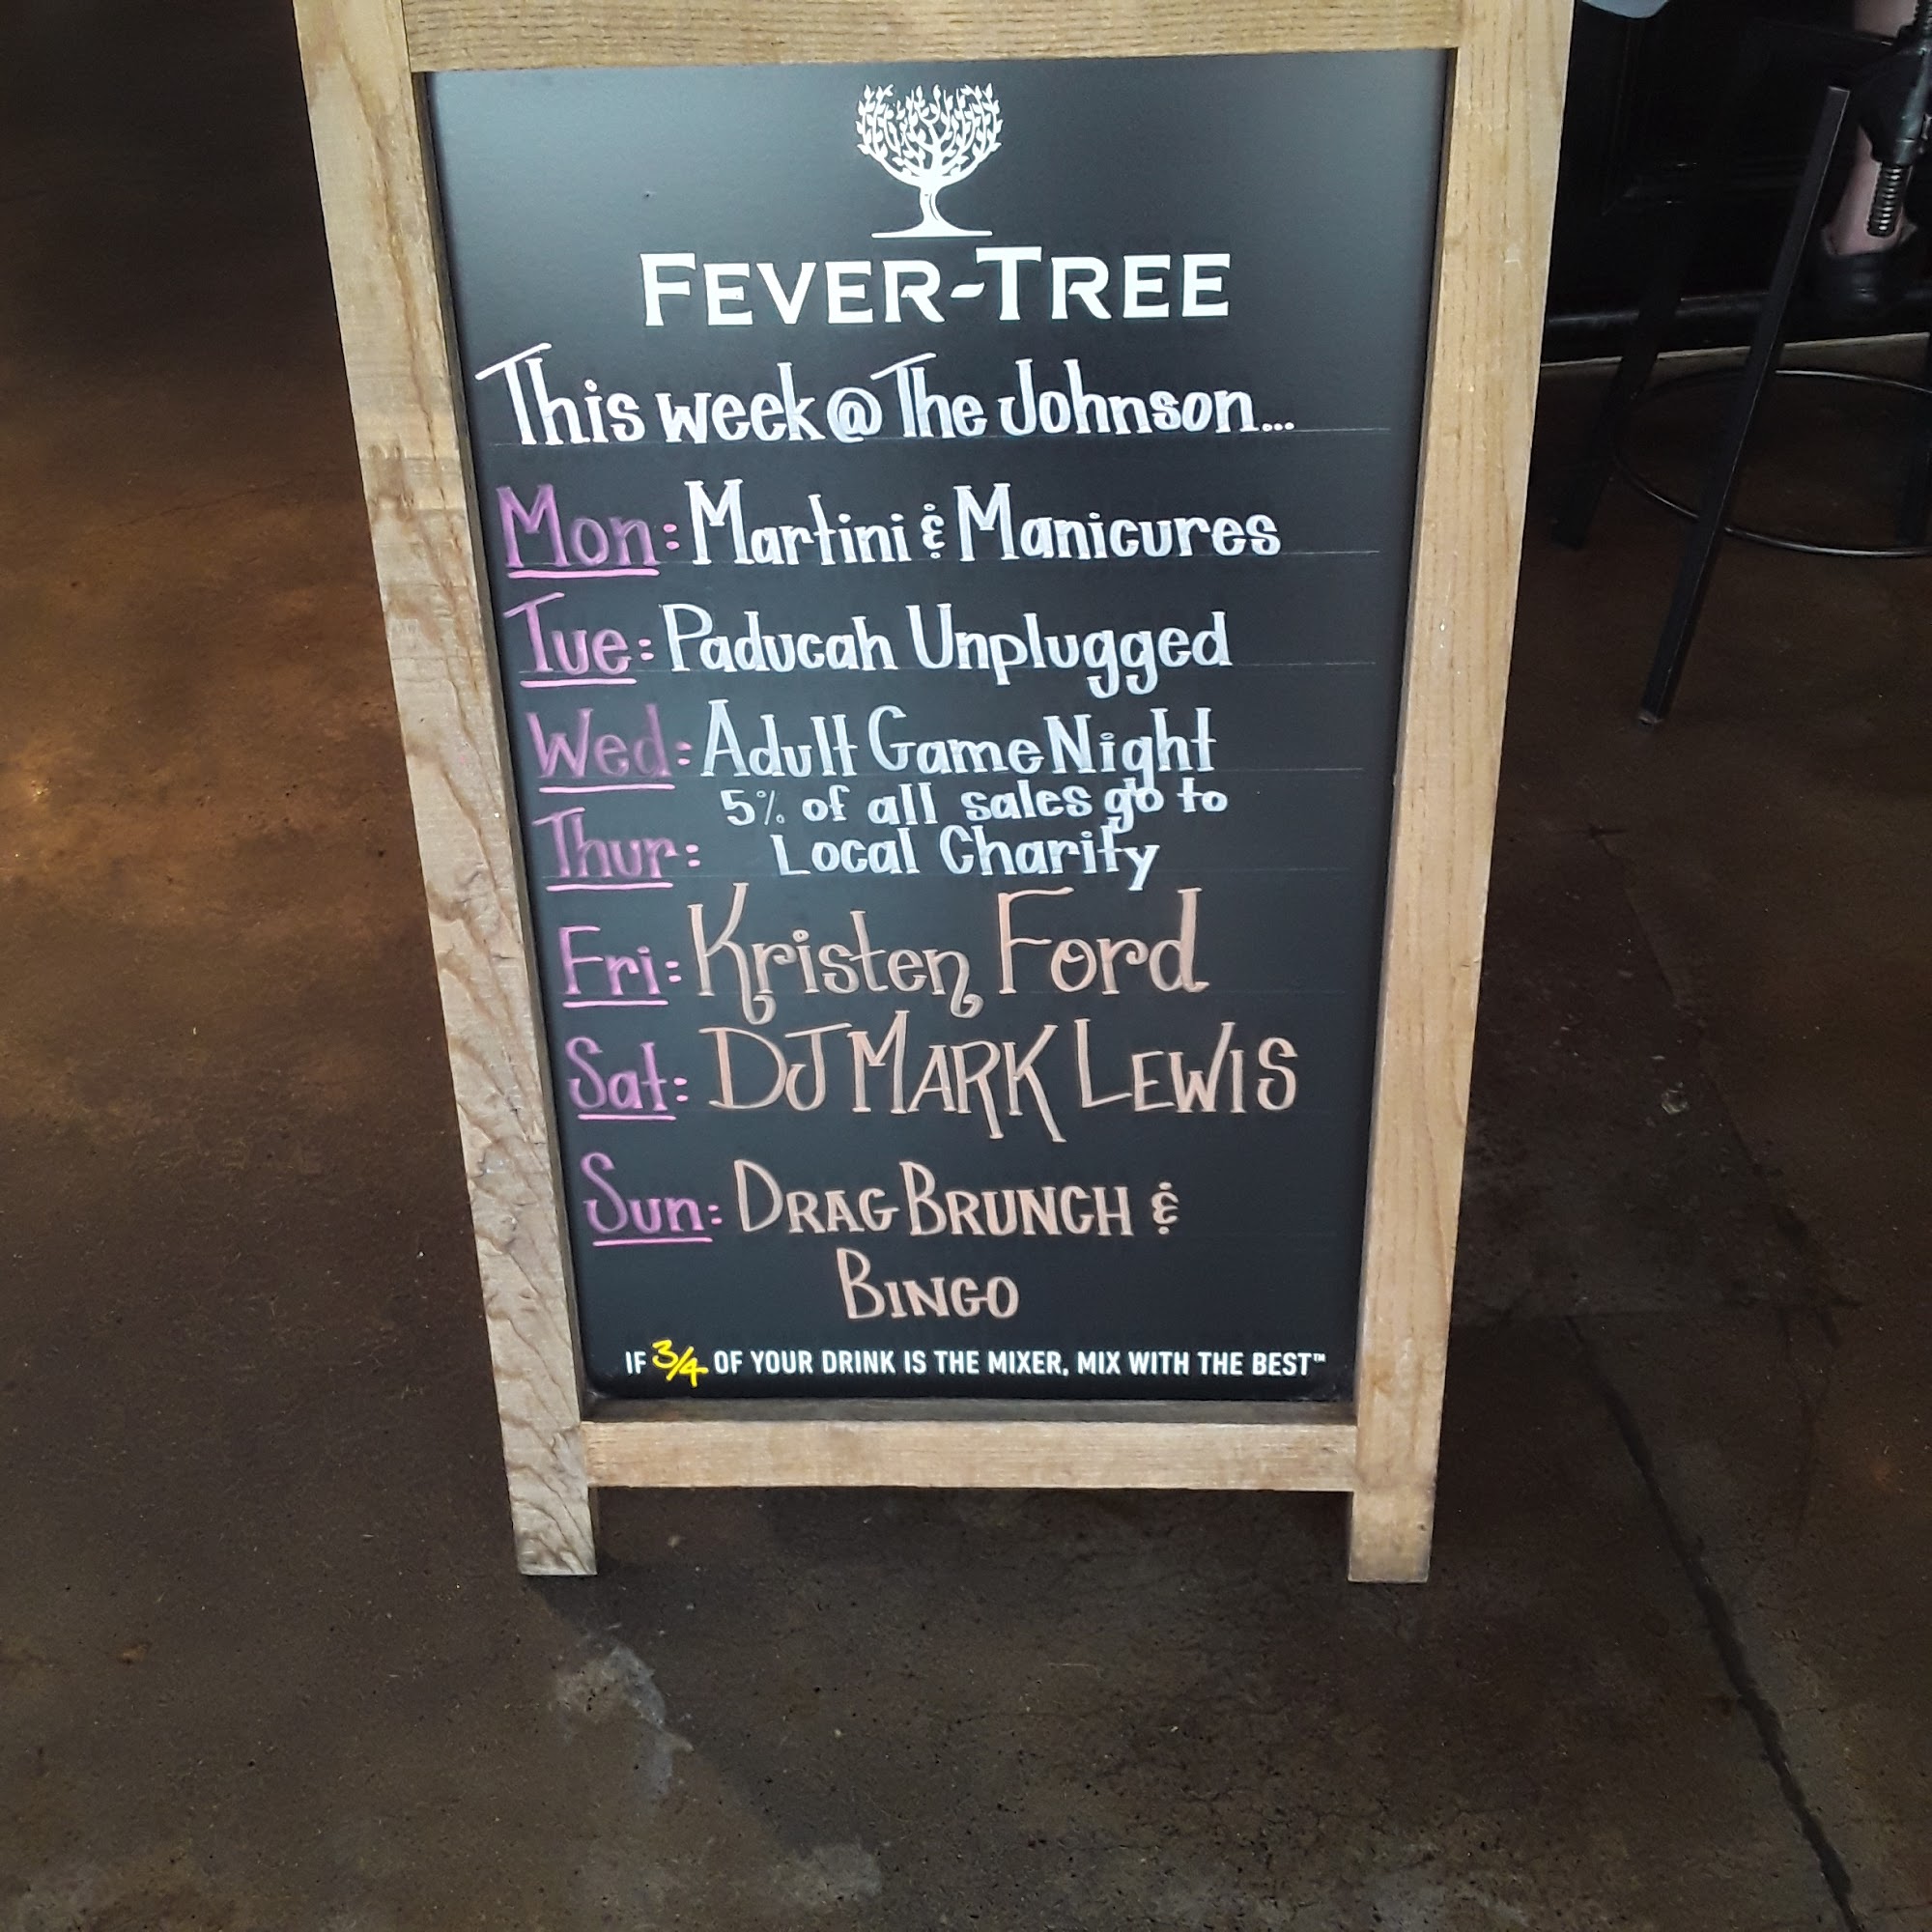 FEVER-TREE
This week @ The Johnson...
Mon: Martini & Manicures
Tue: Paducah Unplugged
Wed: Adult Game Night
5% of all sales go to
Thur: Local Charity
Fri: Kristen Ford
Sat: DJ MARK LEWIS
Sun: DRAG BRUNCH &
BINGO
IF 3/4 OF YOUR DRINK IS THE MIXER, MIX WITH THE BEST™